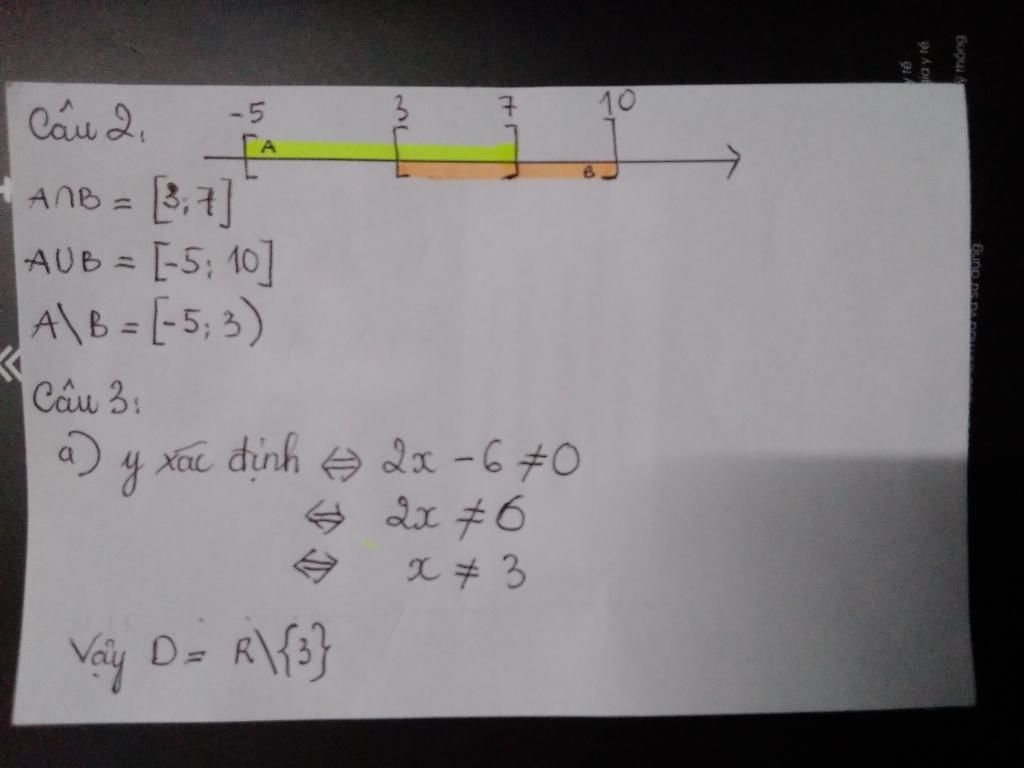 Câu 2:
-5 3 7 10
A B
A∩B = [3; 7]
A∪B = [-5; 10]
A\B = [-5; 3)
Câu 3:
a) y xác định ⇔ 2x - 6 ≠ 0
⇔ 2x ≠ 6
⇔ x ≠ 3
Vậy D = R\{3}
y tế
gia y tế